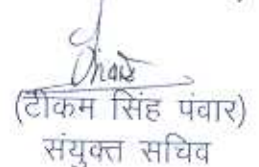 (टीकम सिंह पंवार)
संयुक्त सचिव